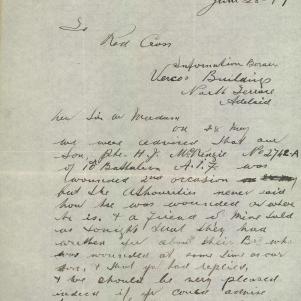 June 20 - 17
To
Red Cross
Information Bureau
Verco Building
North Terrace
Adelaid
Dear Sir or Madam
on 28 May
we were advised that our
Son, Pte. H. J. McKenzie No 2742-A
of 10 Battalion A.I.F. was
(wounded 2nd occasion
but the Athourities never said
how he was wounded or where
he is. & a friend of mine told
us tonight that they had
written you about their Boy who
was wounded at same time as our
& that you had replied,
& we should be very pleased
indeed if you could advise